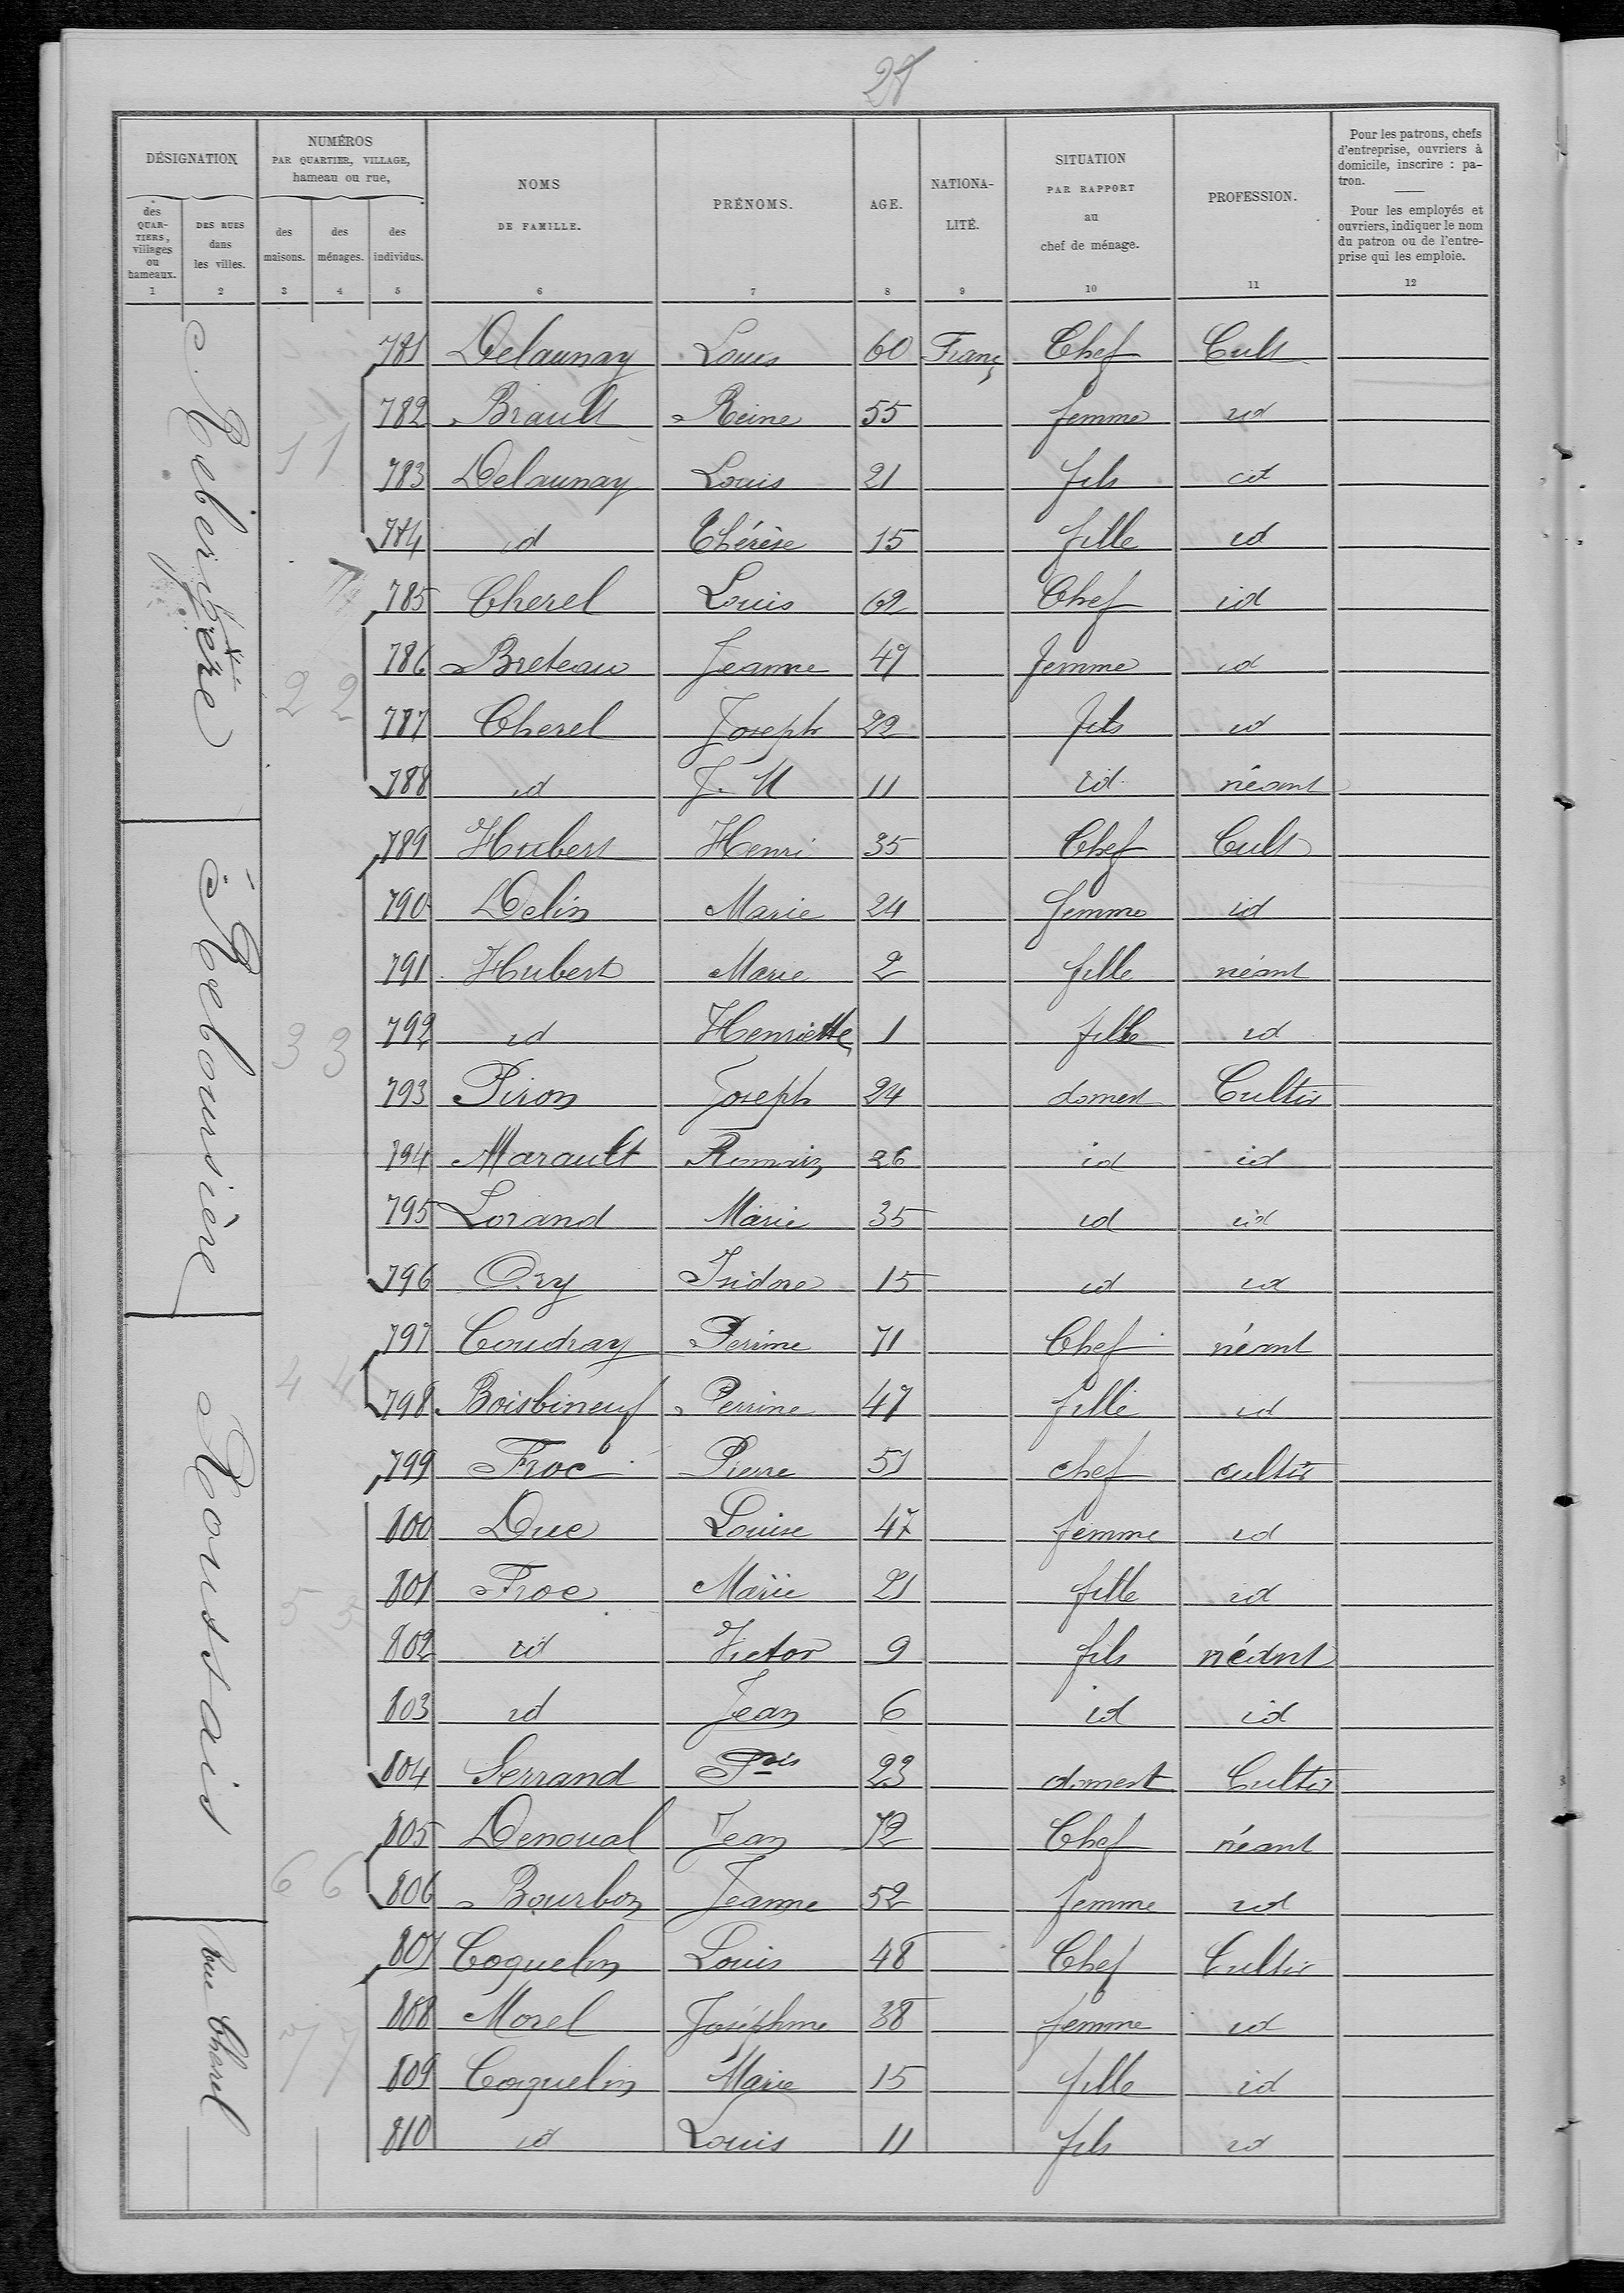 28
DÉSIGNATION
NUMÉROS
PAR QUARTIER, VILLAGE,
hameau ou rue,
des QUARTIERS, villages ou hameaux.
DES RUES dans les villes.
des maisons.
des ménages.
des individus.
NOMS DE FAMILLE.
PRÉNOMS.
AGE.
NATIONALITÉ.
SITUATION PAR RAPPORT au chef de ménage.
PROFESSION.
Pour les patrons, chefs d'entreprise, ouvriers à domicile, inscrire : patron.
Pour les employés et ouvriers, indiquer le nom du patron ou de l'entreprise qui les emploie.
1 2 3 4 5 6 7 8 9 10 11 12
781 Delaunay Louis 60 Franç Chef Cult
782 Brault Reine 55 femme id
1 1 783 Delaunay Louis 21 fils id
784 id Thérèse 15 fille id
785 Cherel Louis 62 Chef id
786 Breteau Jeanne 47 femme id
2 2 787 Cherel Joseph 22 fils id
788 id J. M 11 id néant
789 Hubert Henri 35 Chef Cult
790 Delin Marie 24 femme id
791 Hubert Marie 2 fille néant
3 3 792 id Henriette 1 fille id
793 Piron Joseph 24 domest Cultir
794 Marault Romain 26 id id
795 Lorand Marie 35 id id
La Reboursière
796 Ory Isidore 15 id id
797 Coudray Perrine 71 Chef néant
4 4 798 Boisbineuf Perrine 47 fille id
799 Froc Pierre 51 chef cultir
800 Duc Louise 47 femme id
5 5 801 Froc Marie 21 fille id
Roussais
802 id Victor 9 fils néant
803 id Jean 6 id id
804 Serrand Fcois 23 domest Cultir
805 Denoual Jean 72 Chef néant
6 6 806 Bourbon Jeanne 52 femme id
807 Coquelin Louis 48 Chef Cultir
7 7 808 Morel Joséphine 38 femme id
809 Coquelin Marie 15 fille id
810 id Louis 11 fils id
Cherel